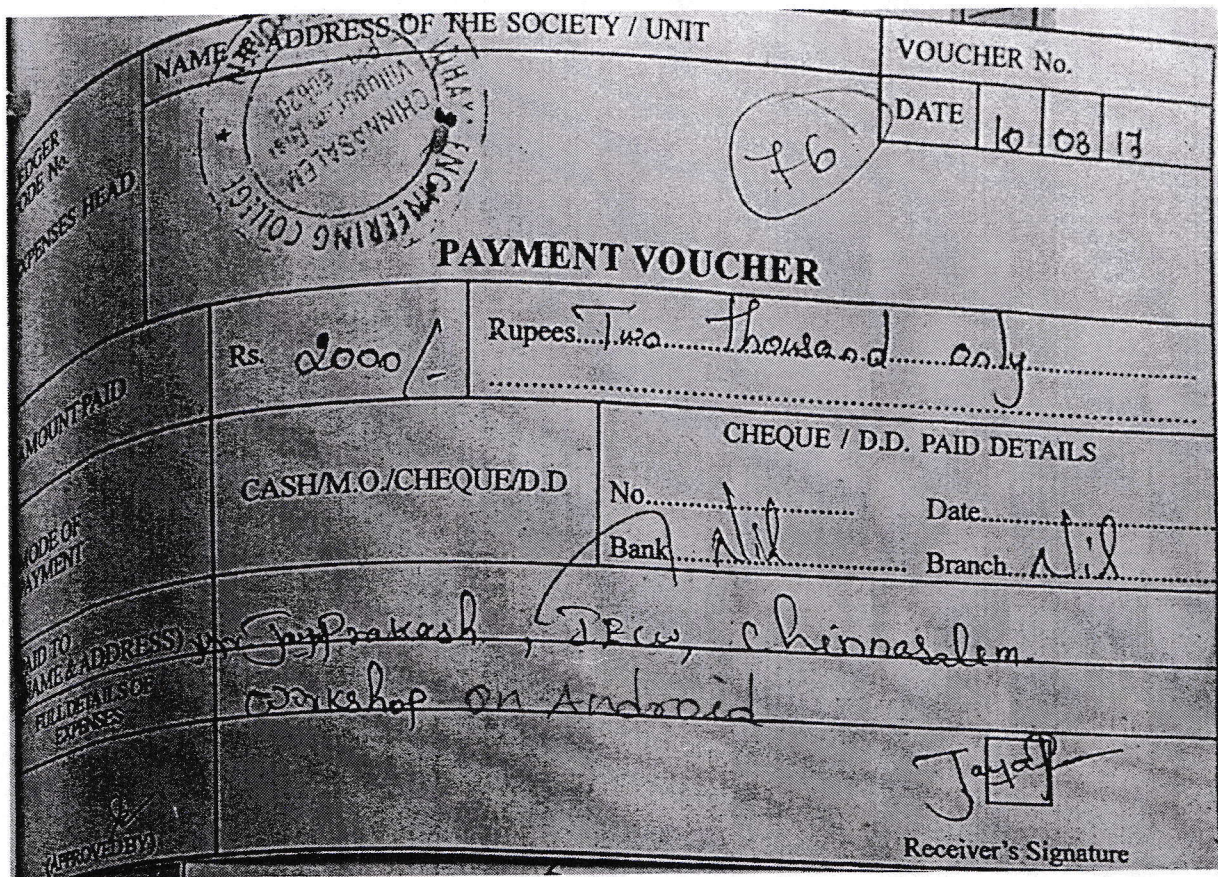 NAME & ADDRESS OF THE SOCIETY / UNIT
VOUCHER No.
DATE 10 08 17
ENGINEERING COLLEGE
CHINNASALEM
76
LEDGER
CODE No.
EXPENSES HEAD
PAYMENT VOUCHER
AMOUNT PAID
Rs. 2000/-
Rupees....Two......Thousand......only
MODE OF
PAYMENT
CASH/M.O./CHEQUE/D.D
CHEQUE / D.D. PAID DETAILS
No.................. Date..................
Bank....Nil.......... Branch...Nil..........
PAID TO
NAME & ADDRESS) Mr JayPrakash, Chinnasalem.
FULL DETAILS OF
EXPENSES
Workshop on Android
(APPROVED BY)
Receiver's Signature